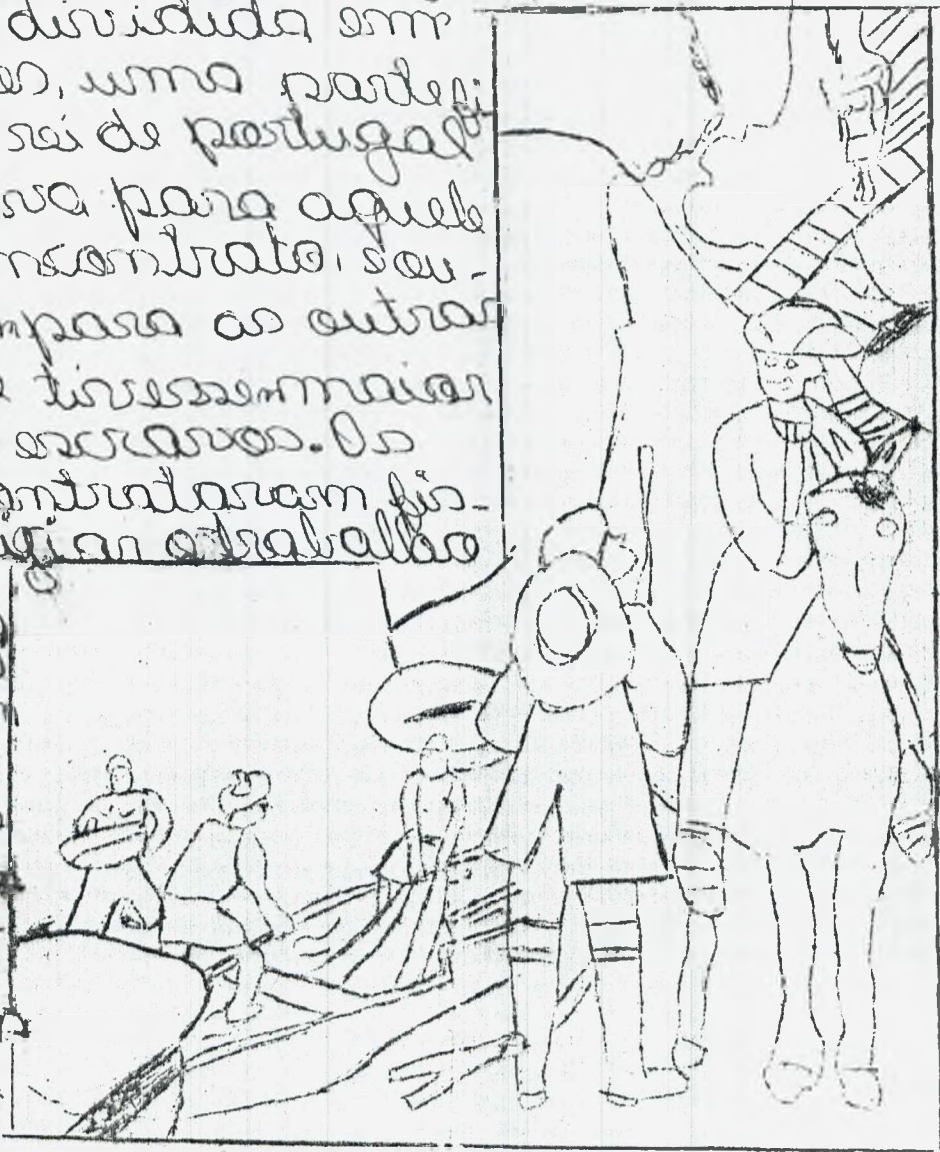 dividida em
es, uma parte
rei de portugal
va para aquele
ncontrato, sou-
mpara as outras
e tivessem maior
escravos. Os
ontrataram fis-
igiar o trabalho